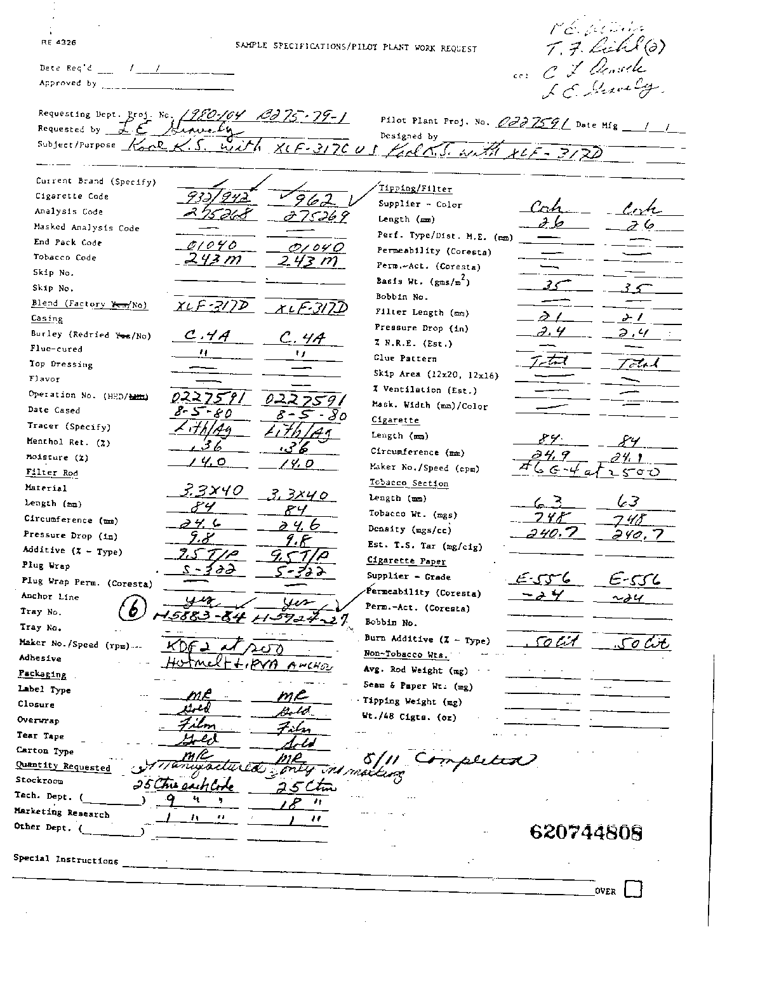 RE 4326
SAMPLE SPECIFICATIONS/PILOT PLANT WORK REQUEST
T. F. Riehl (2)
Date Req'd / /
cc: C I
Approved by
L E Gravely
Requesting Dept. Proj. No. 1980-104 B275-79-1 Pilot Plant Proj. No. 0227591 Date Mfg / /
Requested by L E Gravely Designed by
Subject/Purpose Kool K.S. with XLF-317C US Kool K.S. with XLF-317D
Current Brand (Specify)
Cigarette Code 932/942 962
Analysis Code 275268 275269
Masked Analysis Code — —
End Pack Code 01040 01040
Tobacco Code 243M 243M
Skip No.
Skip No.
Blend (Factory Yes/No) XLF-317D XLF-317D
Casing
Burley (Redried Yes/No) C.4A C.4A
Flue-cured " "
Top Dressing — —
Flavor — —
Operation No. 0227591 0227591
Date Cased 8-5-80 8-5-80
Tracer (Specify) Lith/Ag Lith/Ag
Menthol Ret. (%) .36 .36
Moisture (%) 14.0 14.0
Filter Rod
Material 3.3X40 3.3X40
Length (mm) 84 84
Circumference (mm) 24.6 24.6
Pressure Drop (in) 9.8 9.8
Additive (% - Type) 9.5 T/P 9.5 T/P
Plug Wrap 5-322 5-322
Plug Wrap Perm. (Coresta) — —
Anchor Line yes yes
Tray No. (6) H5883-84 H-5924-27
Tray No.
Maker No./Speed (rpm) KDF2 at 1200
Adhesive Hotmelt + PVA ANCHOR
Packaging
Label Type MR MR
Closure Gold Gold
Overwrap Film Film
Tear Tape Gold Gold
Carton Type MR MR
Quantity Requested Manufactured only no marking
Stockroom 25 Ctns each Code 25 Ctns
Tech. Dept. ( ) 9 " " 18 "
Marketing Research 1 " " 1 "
Other Dept. ( )
Tipping/Filter
Supplier - Color Cork Cork
Length (mm) 26 26
Perf. Type/Dist. M.E. (mm) — —
Permeability (Coresta) — —
Perm.-Act. (Coresta) — —
Basis Wt. (gms/m2) 35 35
Bobbin No. — —
Filter Length (mm) 21 21
Pressure Drop (in) 2.4 2.4
% N.R.E. (Est.) — —
Glue Pattern Total Total
Skip Area (12x20, 12x16) — —
% Ventilation (Est.) — —
Mask. Width (mm)/Color — —
Cigarette
Length (mm) 84. 84
Circumference (mm) 24.9 24.9
Maker No./Speed (cpm) #6 G-4 at 2500
Tobacco Section
Length (mm) 63 63
Tobacco Wt. (mgs) 748 748
Density (mgs/cc) 240.7 240.7
Est. T.S. Tar (mg/cig)
Cigarette Paper
Supplier - Grade E-556 E-556
Permeability (Coresta) ~24 ~24
Perm.-Act. (Coresta)
Bobbin No.
Burn Additive (% - Type) .50 Cit .50 Cit
Non-Tobacco Wts.
Avg. Rod Weight (mg)
Seam & Paper Wt. (mg)
Tipping Weight (mg)
Wt./48 Cigts. (oz)
8/11 Completed
620744808
Special Instructions
OVER